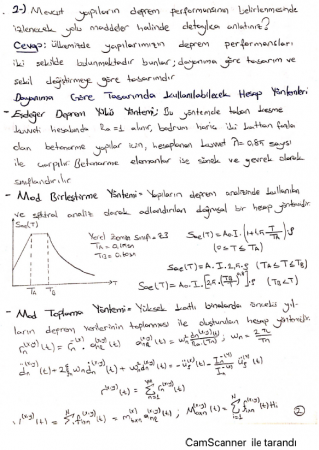 2-) Mevcut yapıların deprem performansının belirlenmesinde
izlenecek yolu maddeler halinde detaylıca anlatınız?
Cevap: Ülkemizde yapılarımızın deprem performansları
iki şekilde bulunmaktadır bunlar; dayanıma göre tasarım ve
şekil değiştirmeye göre tasarımdır
Dayanıma Göre Tasarımda kullanılabilecek Hesap Yöntemleri
- Eşdeğer Deprem Yükü Yöntemi; Bu yöntemde taban kesme
kuvveti hesabında Ra=1 alınır, bodrum hariç iki kattan fazla
olan betonarme yapılar için, hesaplanan kuvvet λ=0.85 sayısı
ile çarpılır. Betonarme elemanlar ise sünek ve gevrek olarak
sınıflandırılır
- Mod Birleştirme Yöntemi= Yapıların deprem analizinde kullanılan
ve spektral analiz olarak adlandırılan doğrusal bir hesap yöntemidir.
Sae(T)
Yerel Zemin Sınıfı= Z3
TA = 0.15sn
TB = 0.60sn
TA TB T
Sae(T) = A0.I.[1+1,5 T/TA].g
(0≤T≤TA)
Sae(T) = A.I.2,5.g (TA≤T≤TB)
(TB<T)
- Mod Toplama Yöntemi= Yüksek katlı binalarda önceki yıl-
ların deprem verilerinin toplanması ile oluşturulan hesap yöntemidir.
2
CamScanner ile tarandı